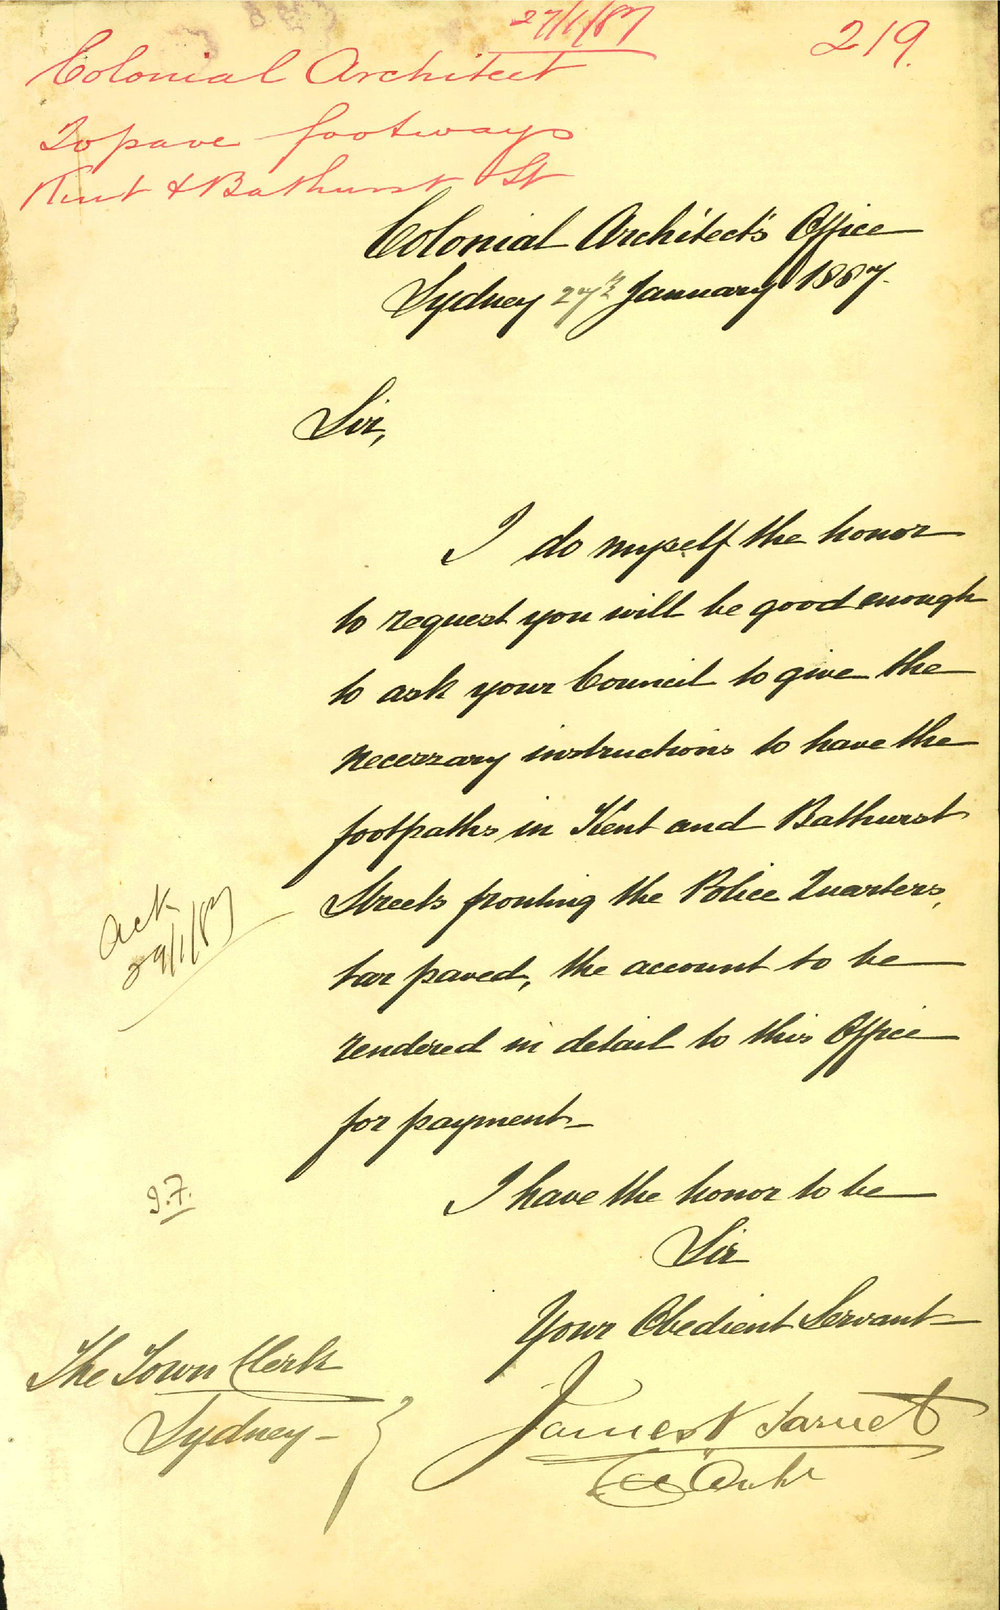 27/1/87
219.
Colonial Architect
To pave footways
Kent & Bathurst St
Colonial Architect's Office
Sydney 27th January 1887.
Sir,
I do myself the honor
to request you will be good enough
to ask your Council to give the
necessary instructions to have the
footpaths in Kent and Bathurst
Streets fronting the Police Quarters,
tar paved, the account to be
rendered in detail to this Office
for payment -
Ack
29/1/87
I have the honor to be
Sir
Your Obedient Servant
The Town Clerk
Sydney -
James Barnet
Col Archt